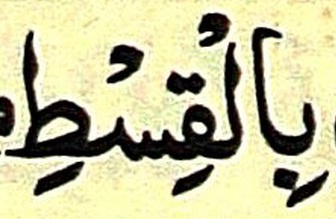 بِالْقِسْطِ